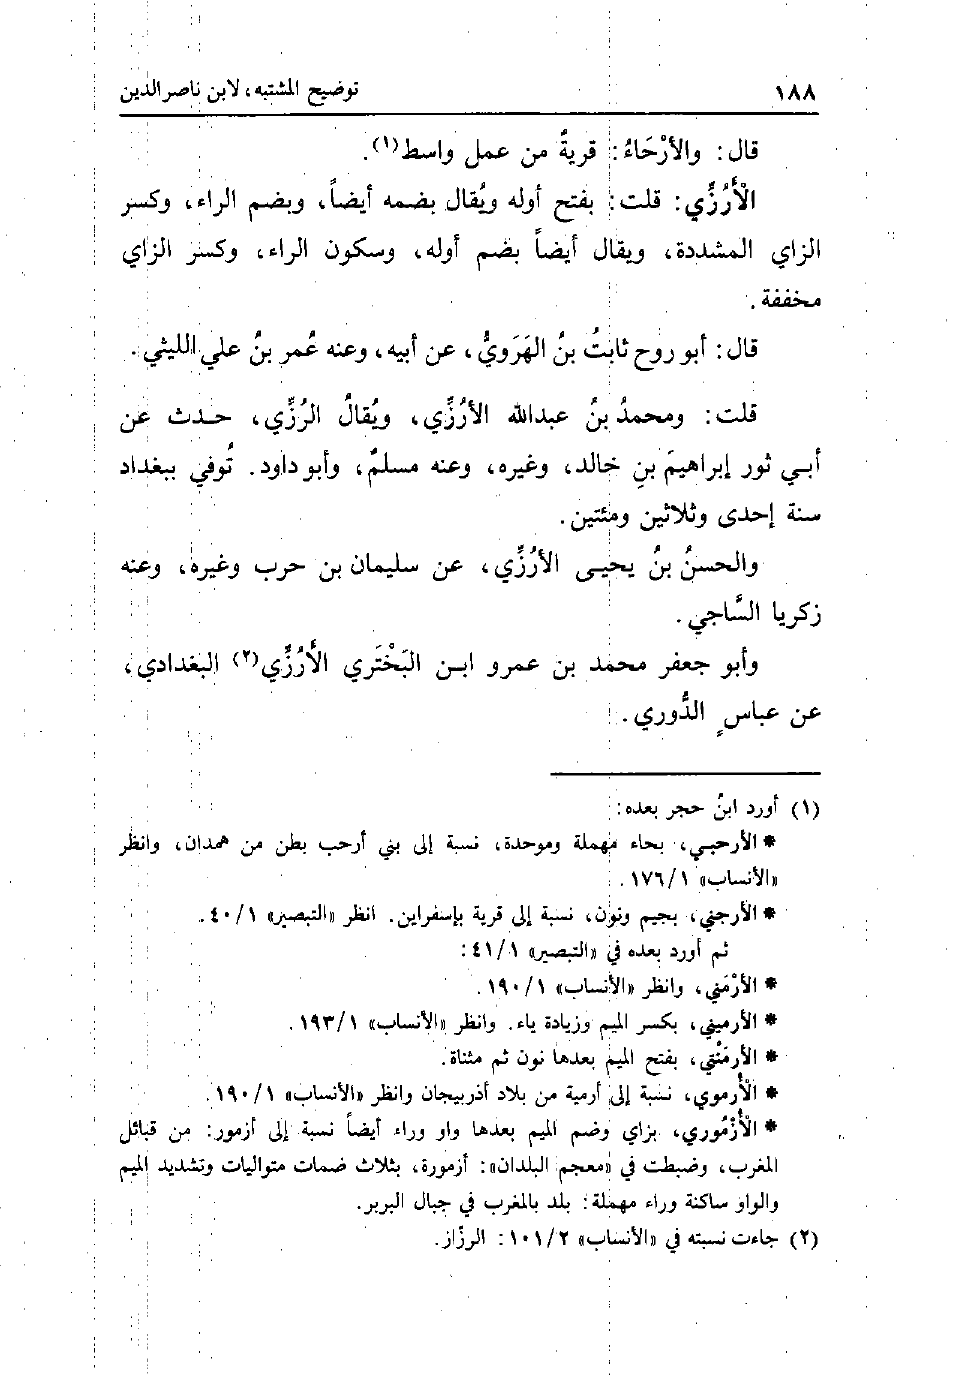 ١٨٨ توضيح المشتبه، لابن ناصر الدين
قال: والأرْحَاءُ: قريةٌ من عمل واسط(١).
الْأَرُزِّي: قلت: بفتح أوله ويُقال بضمه أيضاً، وبضم الراء، وكسر
الزاي المشددة، ويقال أيضاً بضم أوله، وسكون الراء، وكسر الزاي
مخففة.
قال: أبو روح ثابتُ بنُ الهَرَويُّ، عن أبيه، وعنه عُمر بنُ علي الليثي.
قلت: ومحمدُ بنُ عبدالله الأرُزِّي، ويُقالُ الرُزِّي، حدث عن
أبي ثور إبراهيمَ بنِ خالد، وغيره، وعنه مسلمٌ، وأبو داود. تُوفي ببغداد
سنة إحدى وثلاثين ومئتين.
والحسنُ بنُ يحيى الأرُزِّي، عن سليمان بن حرب وغيره، وعنه
زكريا السَّاجي.
وأبو جعفر محمد بن عمرو ابن البَخْتَري الأَرُزِّي(٢) البغدادي،
عن عباسٍ الدُّوري.
(١) أورد ابنُ حجر بعده:
* الأرحبي، بحاء مهملة وموحدة، نسبة إلى بني أرحب بطن من همدان، وانظر
«الأنساب» ١/١٧٦.
* الأرجني، بجيم ونون، نسبة إلى قرية بإسفراين. انظر «التبصير» ١/٤٠.
ثم أورد بعده في «التبصير» ١/٤١:
* الأرْمَني، وانظر «الأنساب» ١/١٩٠.
* الأرميني، بكسر الميم وزيادة ياء. وانظر «الأنساب» ١/١٩٣.
* الأرمَنْتي، بفتح الميم بعدها نون ثم مثناة.
* الْأُرموي، نسبة إلى أرمية من بلاد أذربيجان وانظر «الأنساب» ١/١٩٠.
* الْأَزْمُوري، بزاي وضم الميم بعدها واو وراء أيضاً نسبة إلى أزمور: من قبائل
المغرب، وضبطت في «معجم البلدان»: أزمورة، بثلاث ضمات متواليات وتشديد الميم
والواو ساكنة وراء مهملة: بلد بالمغرب في جبال البربر.
(٢) جاءت نسبته في «الأنساب» ٢/١٠١: الرزّاز.